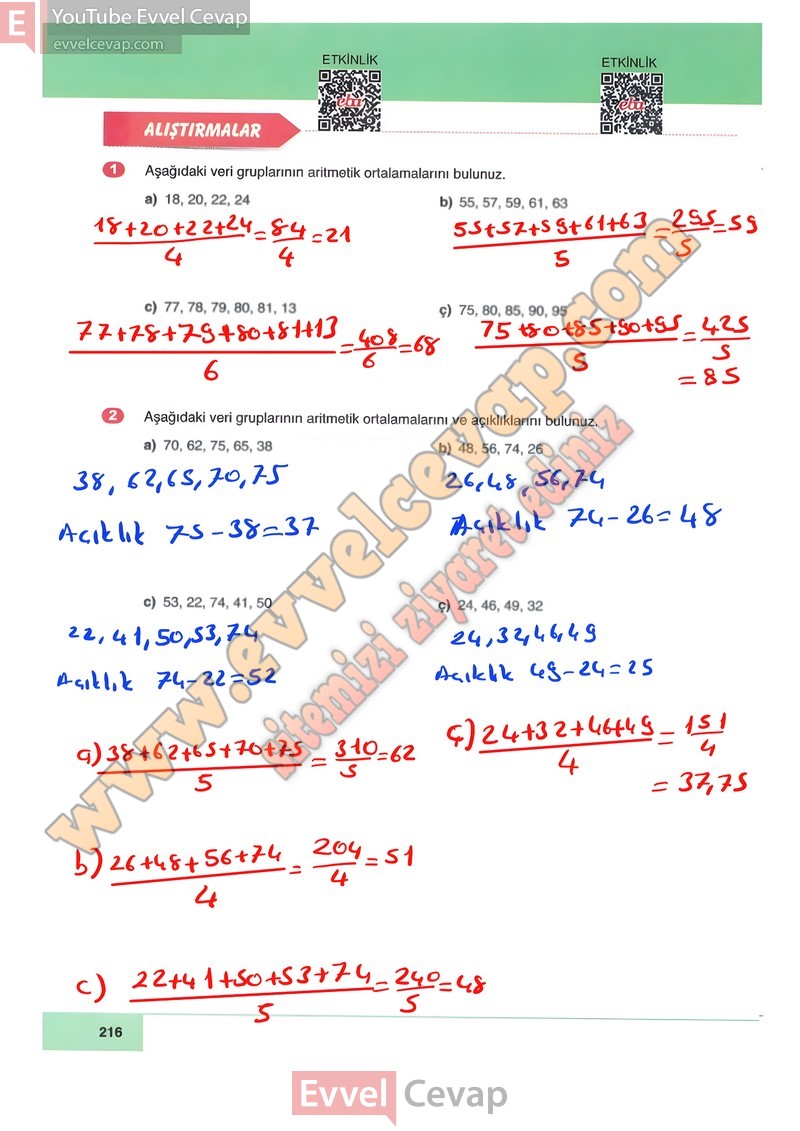 E YouTube Evvel Cevap
evvelcevap.com
ETKİNLİK
ETKİNLİK
eba
eba
ALIŞTIRMALAR
1 Aşağıdaki veri gruplarının aritmetik ortalamalarını bulunuz.
a) 18, 20, 22, 24
b) 55, 57, 59, 61, 63
18+20+22+24/4 = 84/4 = 21
55+57+59+61+63/5 = 295/5 = 59
c) 77, 78, 79, 80, 81, 13
ç) 75, 80, 85, 90, 95
77+78+79+80+81+13/6 = 408/6 = 68
75+80+85+90+95/5 = 425/5
= 85
2 Aşağıdaki veri gruplarının aritmetik ortalamalarını ve açıklıklarını bulunuz.
a) 70, 62, 75, 65, 38
b) 48, 56, 74, 26
38, 62, 65, 70, 75
26, 48, 56, 74
Açıklık 75-38=37
Açıklık 74-26=48
c) 53, 22, 74, 41, 50
ç) 24, 46, 49, 32
22, 41, 50, 53, 74
24, 32, 46, 49
Açıklık 74-22=52
Açıklık 49-24=25
a) 38+62+65+70+75/5 = 310/5 = 62
ç) 24+32+46+49/4 = 151/4
= 37,75
b) 26+48+56+74/4 = 204/4 = 51
c) 22+41+50+53+74/5 = 240/5 = 48
www.evvelcevap.com
sitemizi ziyaret ediniz
216
Evvel Cevap